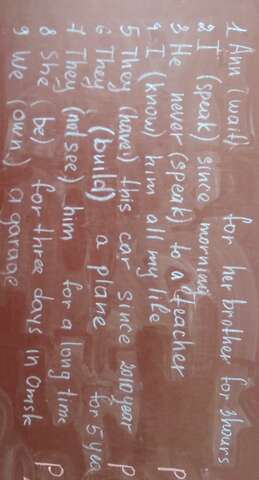 1 Ann (wait) for her brother for 3 hours
2 I (speak) since morning
3 He never (speak) to a teacher P
4 I (know) him all my life
5 They (have) this car since 2010 year P
6 They (build) a plane for 5 yea
7 They (not see) him for a long time
8 She (be) for three days in Omsk P
9 We (own) a garage